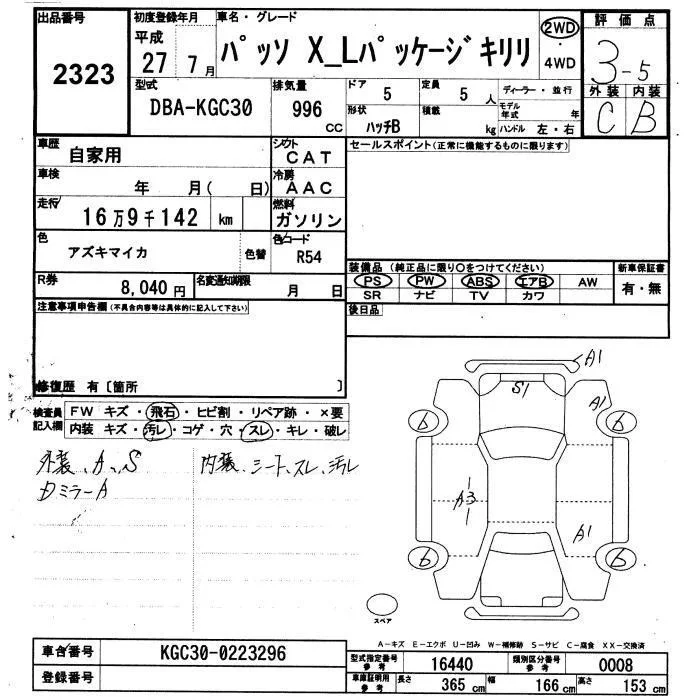 出品番号
2323
初度登録年月
平成
27年 7月
車名・グレード
パッソ X_Lパッケージキリリ
2WD
・
4WD
評価点
3-5
外装 内装
C B
型式
DBA-KGC30
排気量
996 cc
ドア 5
定員 5人
形状 ハッチB
積載 kg
ディーラー・並行
モデル年式 年
ハンドル 左・右
車歴
自家用
シフト CAT
車検 年 月( 日)
冷房 AAC
走行 16万9千142 km
燃料 ガソリン
色 アズキマイカ
色替
色コード R54
R券 8,040円
名変通知期限 月 日
注意事項申告欄(不具合内容等は具体的に記入して下さい)
修復歴 有〔箇所 〕
セールスポイント(正常に機能するものに限ります)
装備品(純正品に限り○をつけてください)
PS PW ABS エアB AW
SR ナビ TV カワ
新車保証書
有・無
後日品
検査員記入欄
FW キズ・飛石・ヒビ割・リペア跡・×要
内装 キズ・汚レ・コゲ・穴・スレ・キレ・破レ
外装、A、S
内装、シート、スレ、汚レ
ミラーA
A1
S1
A1
6
6
A3
A1
6
6
スペア
A-キズ E-エクボ U-凹み W-補修跡 S-サビ C-腐食 XX-交換済
車台番号 KGC30-0223296
登録番号
型式指定番号参考 16440
類別区分番号参考 0008
車庫証明用参考
長さ 365cm
幅 166cm
高さ 153cm